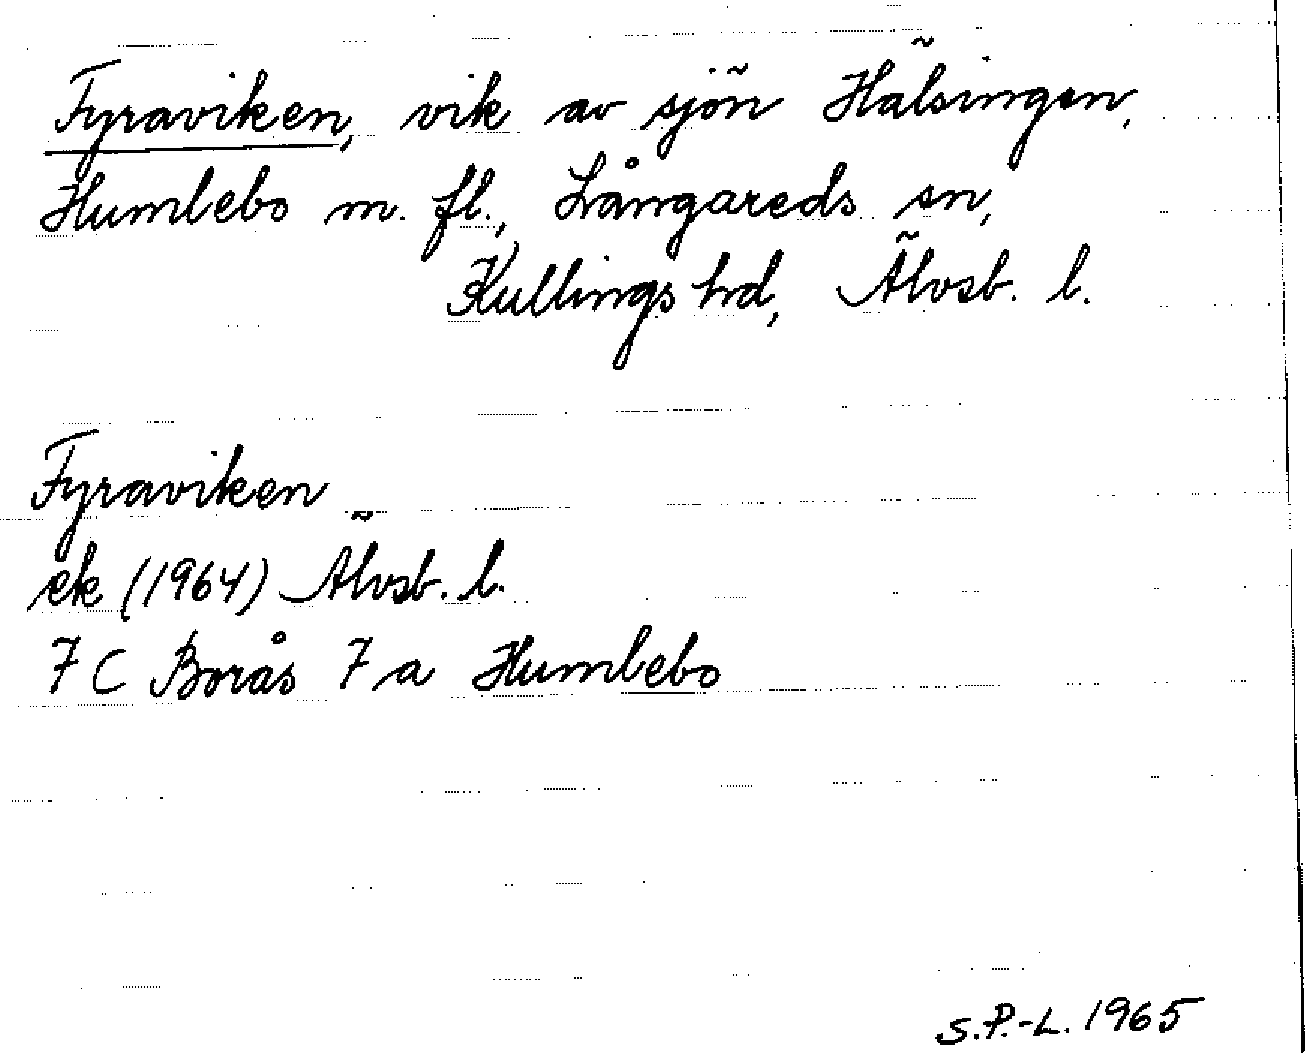 Fyraviken, vik av sjön Hälsingen,
Humlebo m. fl., Långareds sn,
Kullings hd, Älvsb. l.
Fyraviken
ek (1964) Älvsb. l.
7 C Borås 7 a Humlebo
S.P.-L. 1965